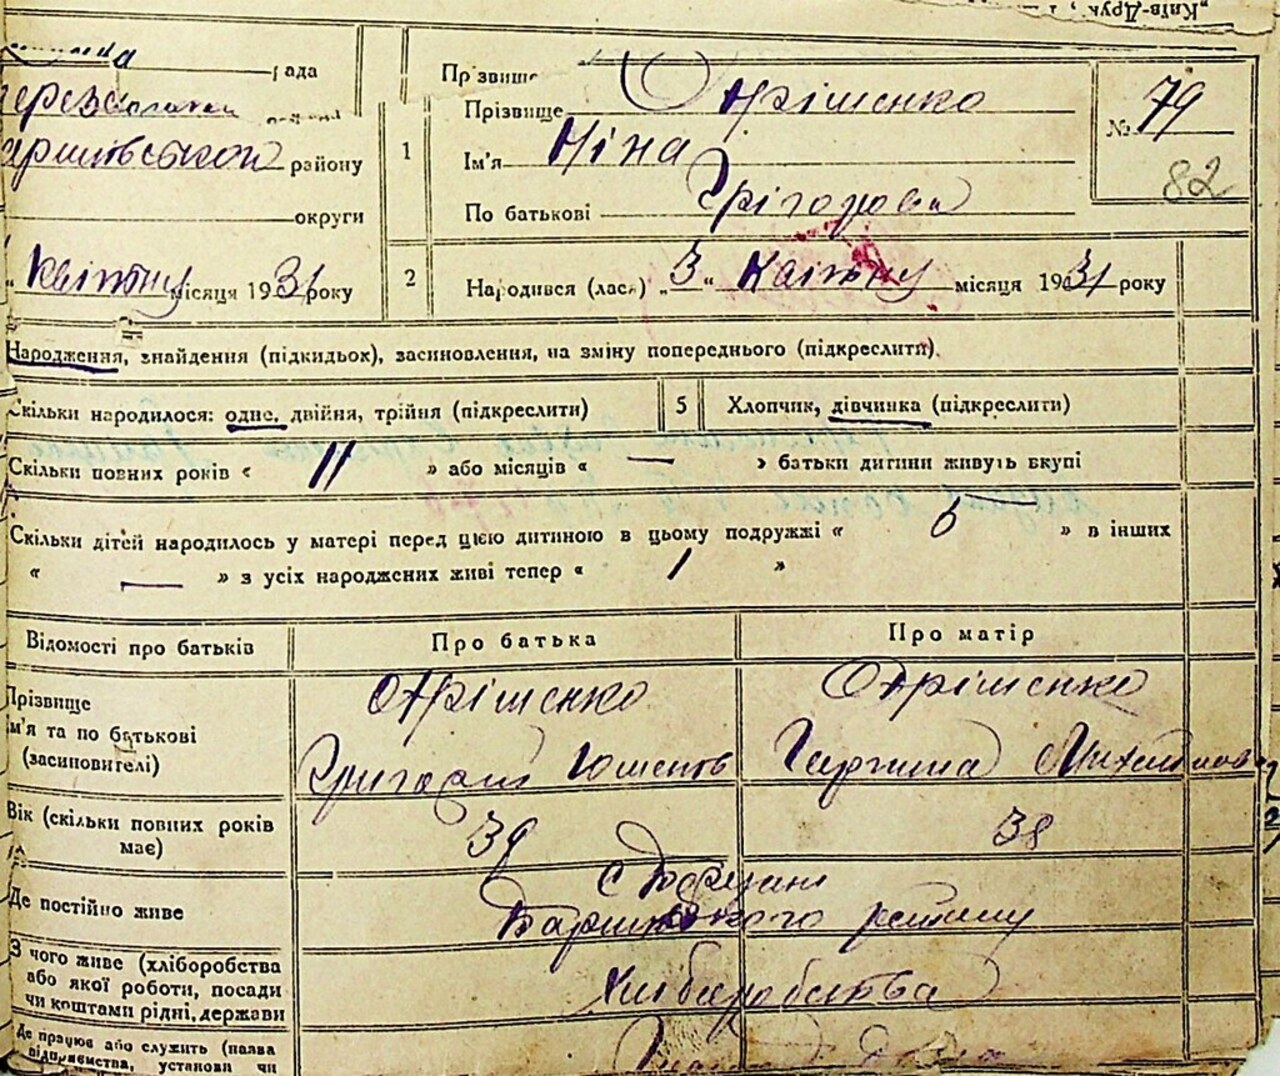 „Київ-Друк",
рада
Прізвище
Прізвище Отрішенко
№ 79
82
районy
1
Ім'я Ніна
округи
По батькові Грігоровн
„ квітню місяця 1931 року
2
Народився (лась) „3" квітню місяця 1931 року
Народження, знайдення (підкидьох), засиновлення, на зміну попереднього (підкреслити)
Скільки народилося: одне, двійня, трійня (підкреслити)
5
Хлопчик, дівчинка (підкреслити)
Скільки повних років « 11 » або місяців « — » батьки дитини живуть вкупі
Скільки дітей народилось у матері перед цією дитиною в цьому подружжі « » в інших
« — » з усіх народжених живі тепер « 1 »
Відомості про батьків
Про батька
Про матір
Прізвище
Отрішенко
Отрішенко
ім'я та по батькові
(засиновителі)
Григорій
Михайлов
Вік (скільки повних років
має)
39
38
Де постійно живе
с
району
З чого живе (хліборобства
або якої роботи, посади
чи коштами рідні, держави
Хліборобства
Де працює або служить (назва
підприємства, установи чи